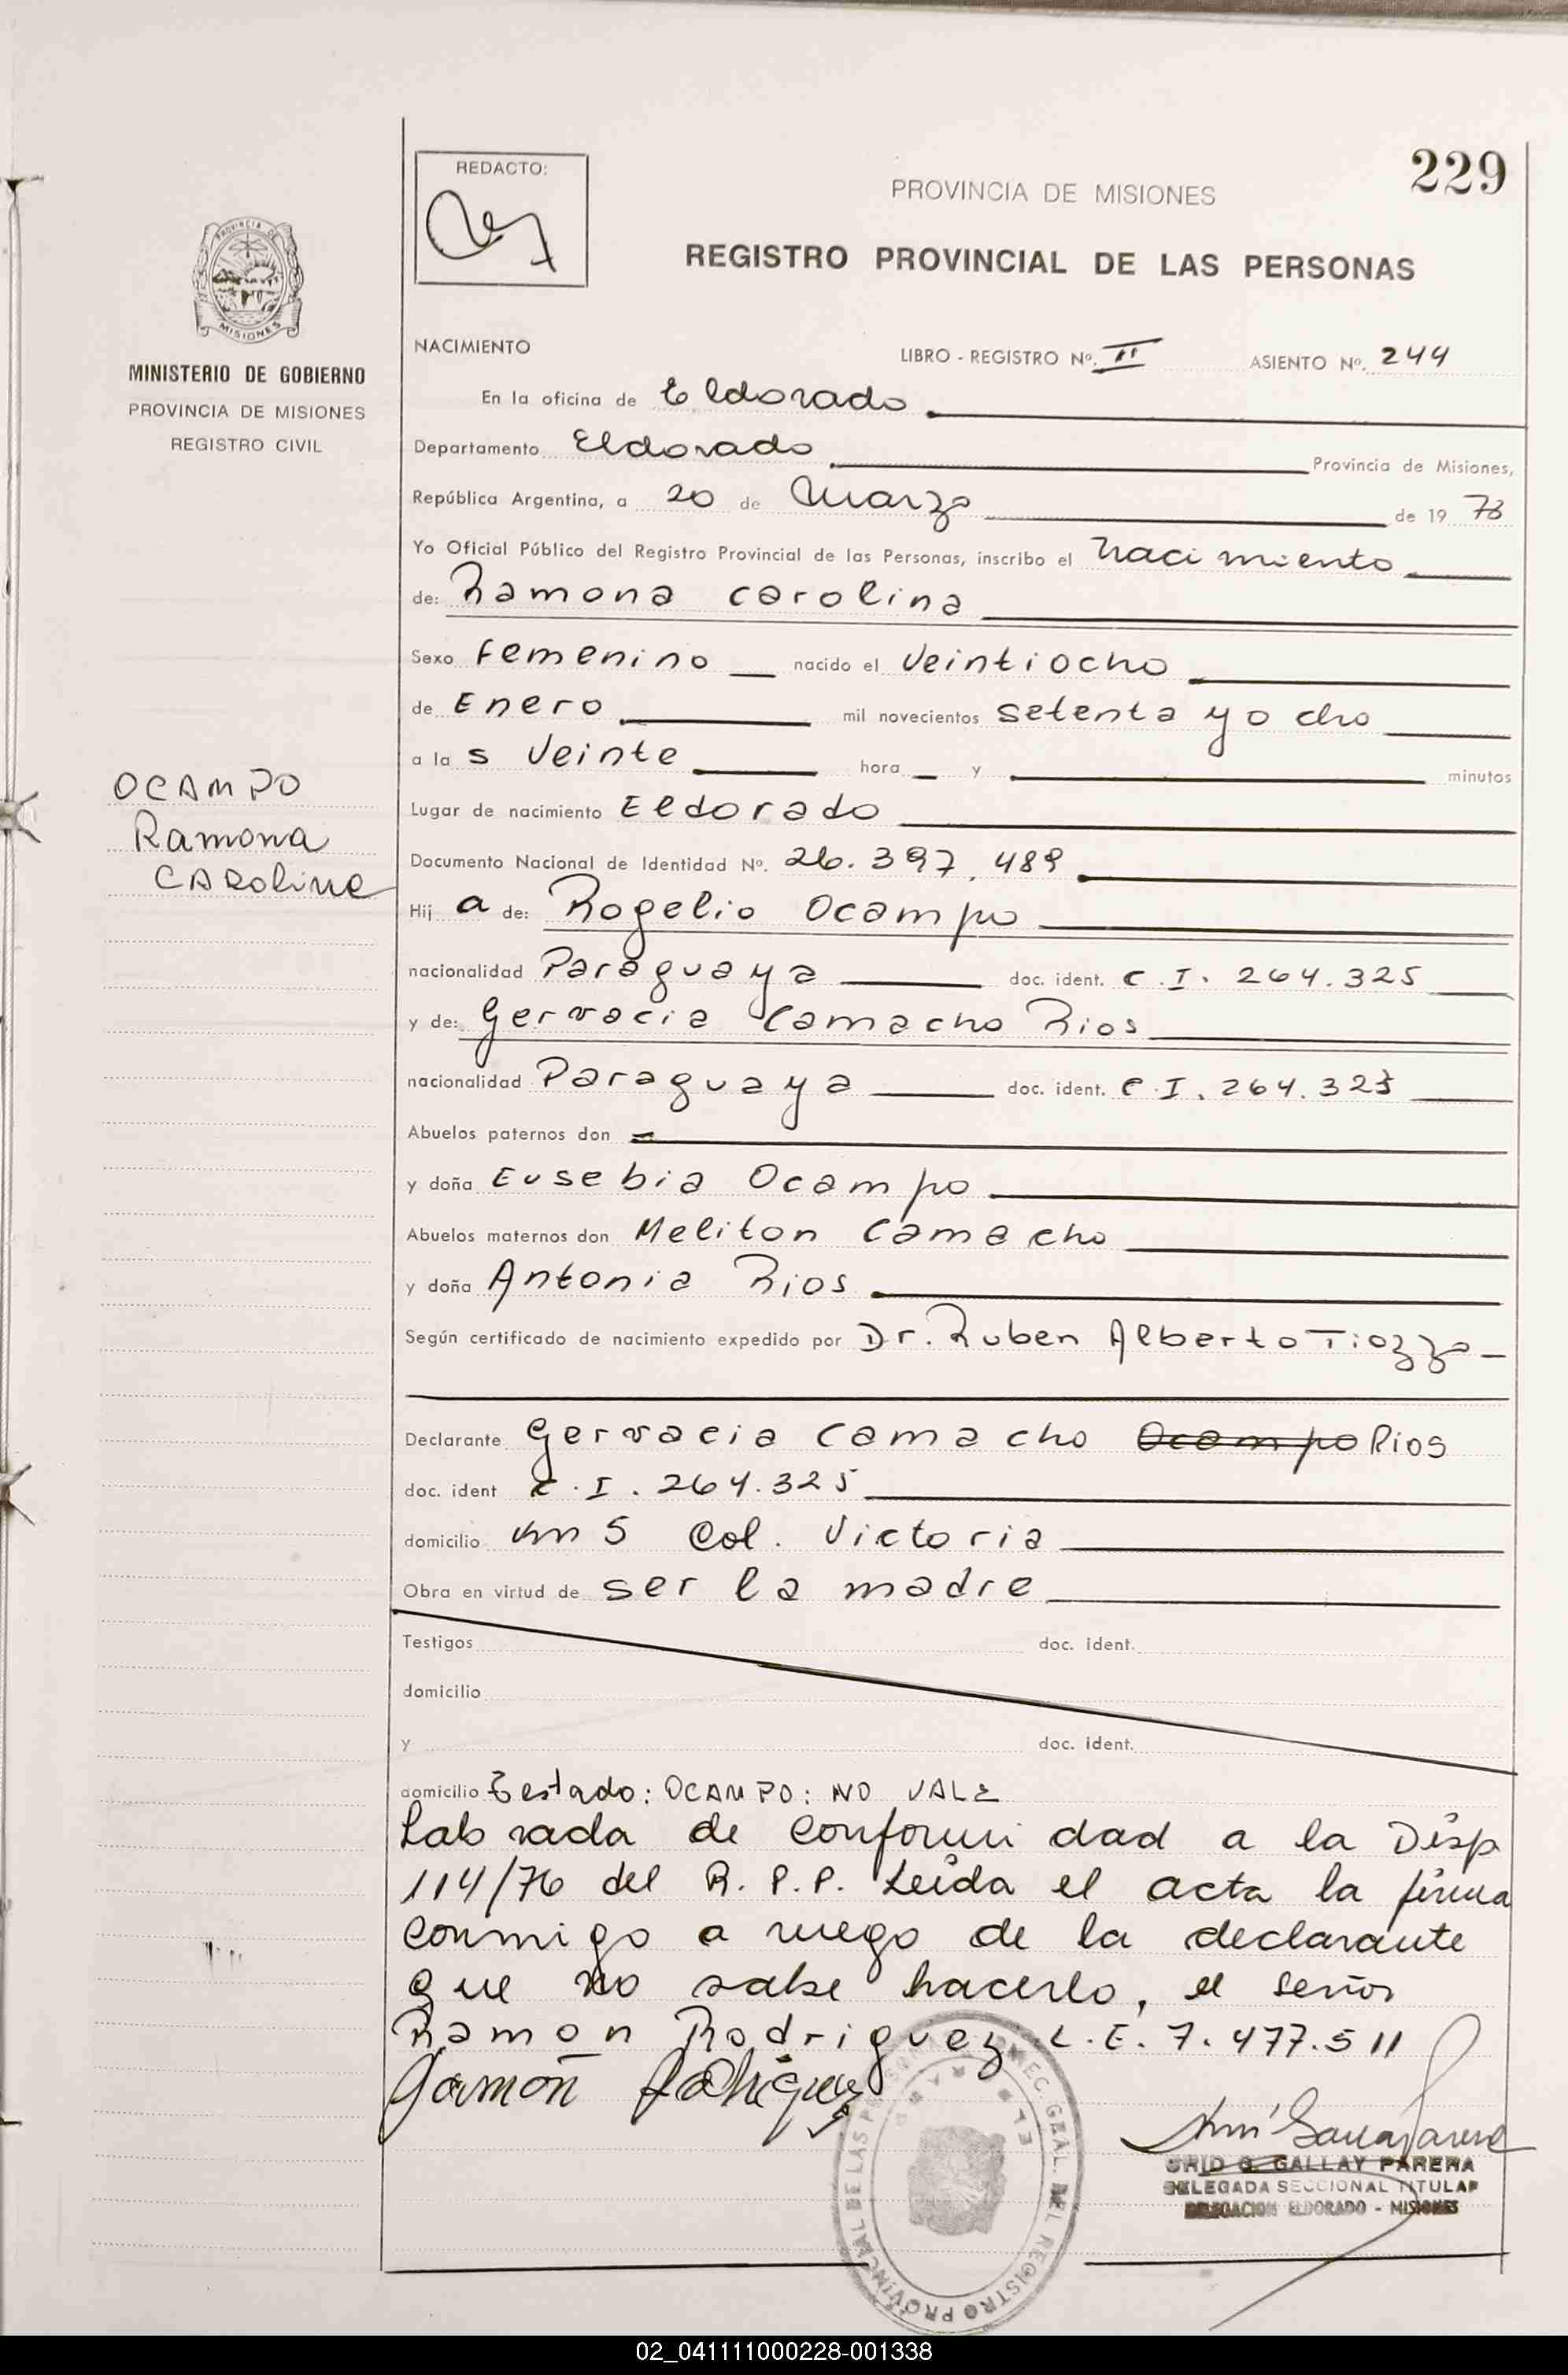 229
REDACTO:
PROVINCIA DE MISIONES
REGISTRO PROVINCIAL DE LAS PERSONAS
PROVINCIA DE
MISIONES
MINISTERIO DE GOBIERNO
PROVINCIA DE MISIONES
REGISTRO CIVIL
NACIMIENTO LIBRO - REGISTRO Nº. II ASIENTO Nº. 244
En la oficina de Eldorado
Departamento Eldorado Provincia de Misiones,
República Argentina, a 20 de Marzo de 19 78
Yo Oficial Público del Registro Provincial de las Personas, inscribo el Nacimiento
de: Ramona Carolina
Sexo Femenino nacido el Veintiocho
de Enero mil novecientos setenta y ocho
a la s Veinte hora y minutos
OCAMPO
Ramona
CARoline
Lugar de nacimiento Eldorado
Documento Nacional de Identidad Nº. 26.397.489
Hij a de: Rogelio Ocampo
nacionalidad Paraguaya doc. ident. C.I. 264.325
y de: Gervacia Camacho Rios
nacionalidad Paraguaya doc. ident. C.I. 264.325
Abuelos paternos don
y doña Eusebia Ocampo
Abuelos maternos don Meliton Camacho
y doña Antonia Rios
Según certificado de nacimiento expedido por Dr. Ruben Alberto Tiozzo
Declarante Gervacia Camacho Ocampo Rios
doc. ident C.I. 264.325
domicilio Km 5 Col. Victoria
Obra en virtud de ser la madre
Testigos doc. ident.
domicilio
y doc. ident.
domicilio Testado: OCAMPO: NO VALE
Labrada de conformidad a la Disp
114/76 del R.P.P. Leida el acta la firma
conmigo a ruego de la declarante
que no sabe hacerlo, el señor
Ramon Rodriguez L.E. 7.477.511
Ramón Rodriguez
DIREC. GRAL. DEL REGISTRO PROVINCIAL DE LAS PERSONAS
G. GALLAY PARERA
DELEGADA SECCIONAL TITULAR
DELEGACION ELDORADO - MISIONES
02_041111000228-001338